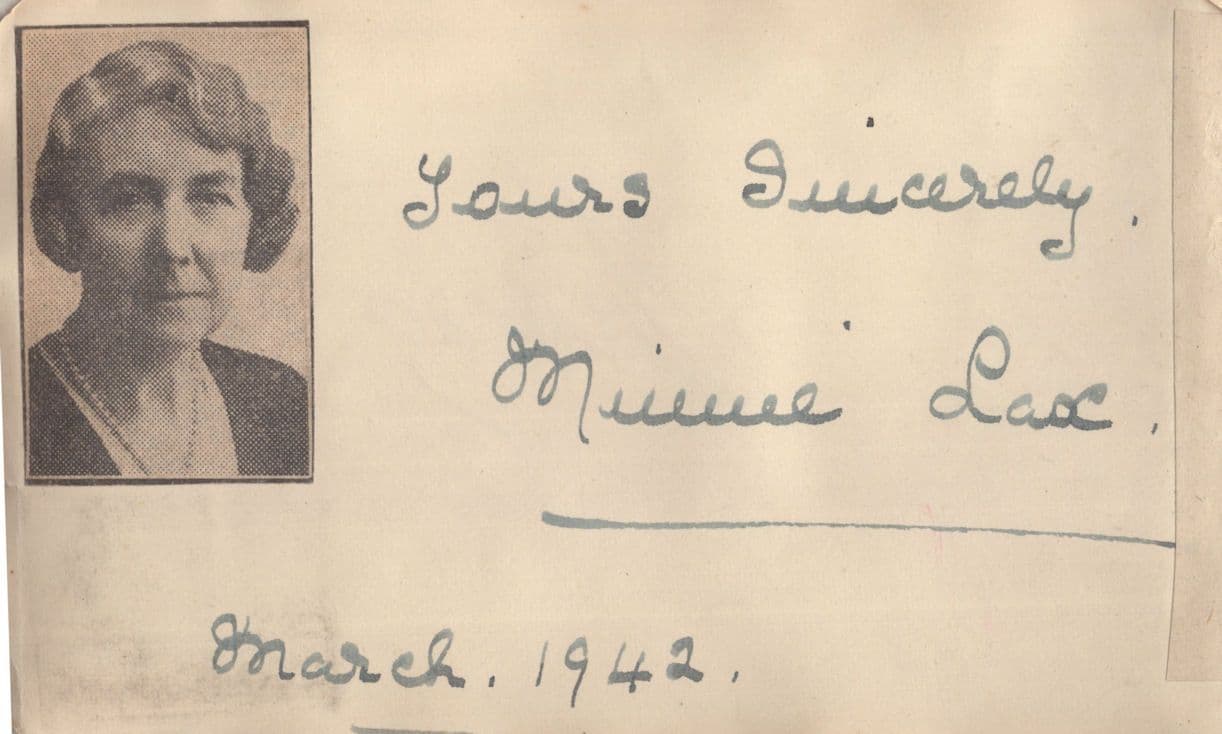 Yours Sincerely.
Minnie Lax.
March. 1942.